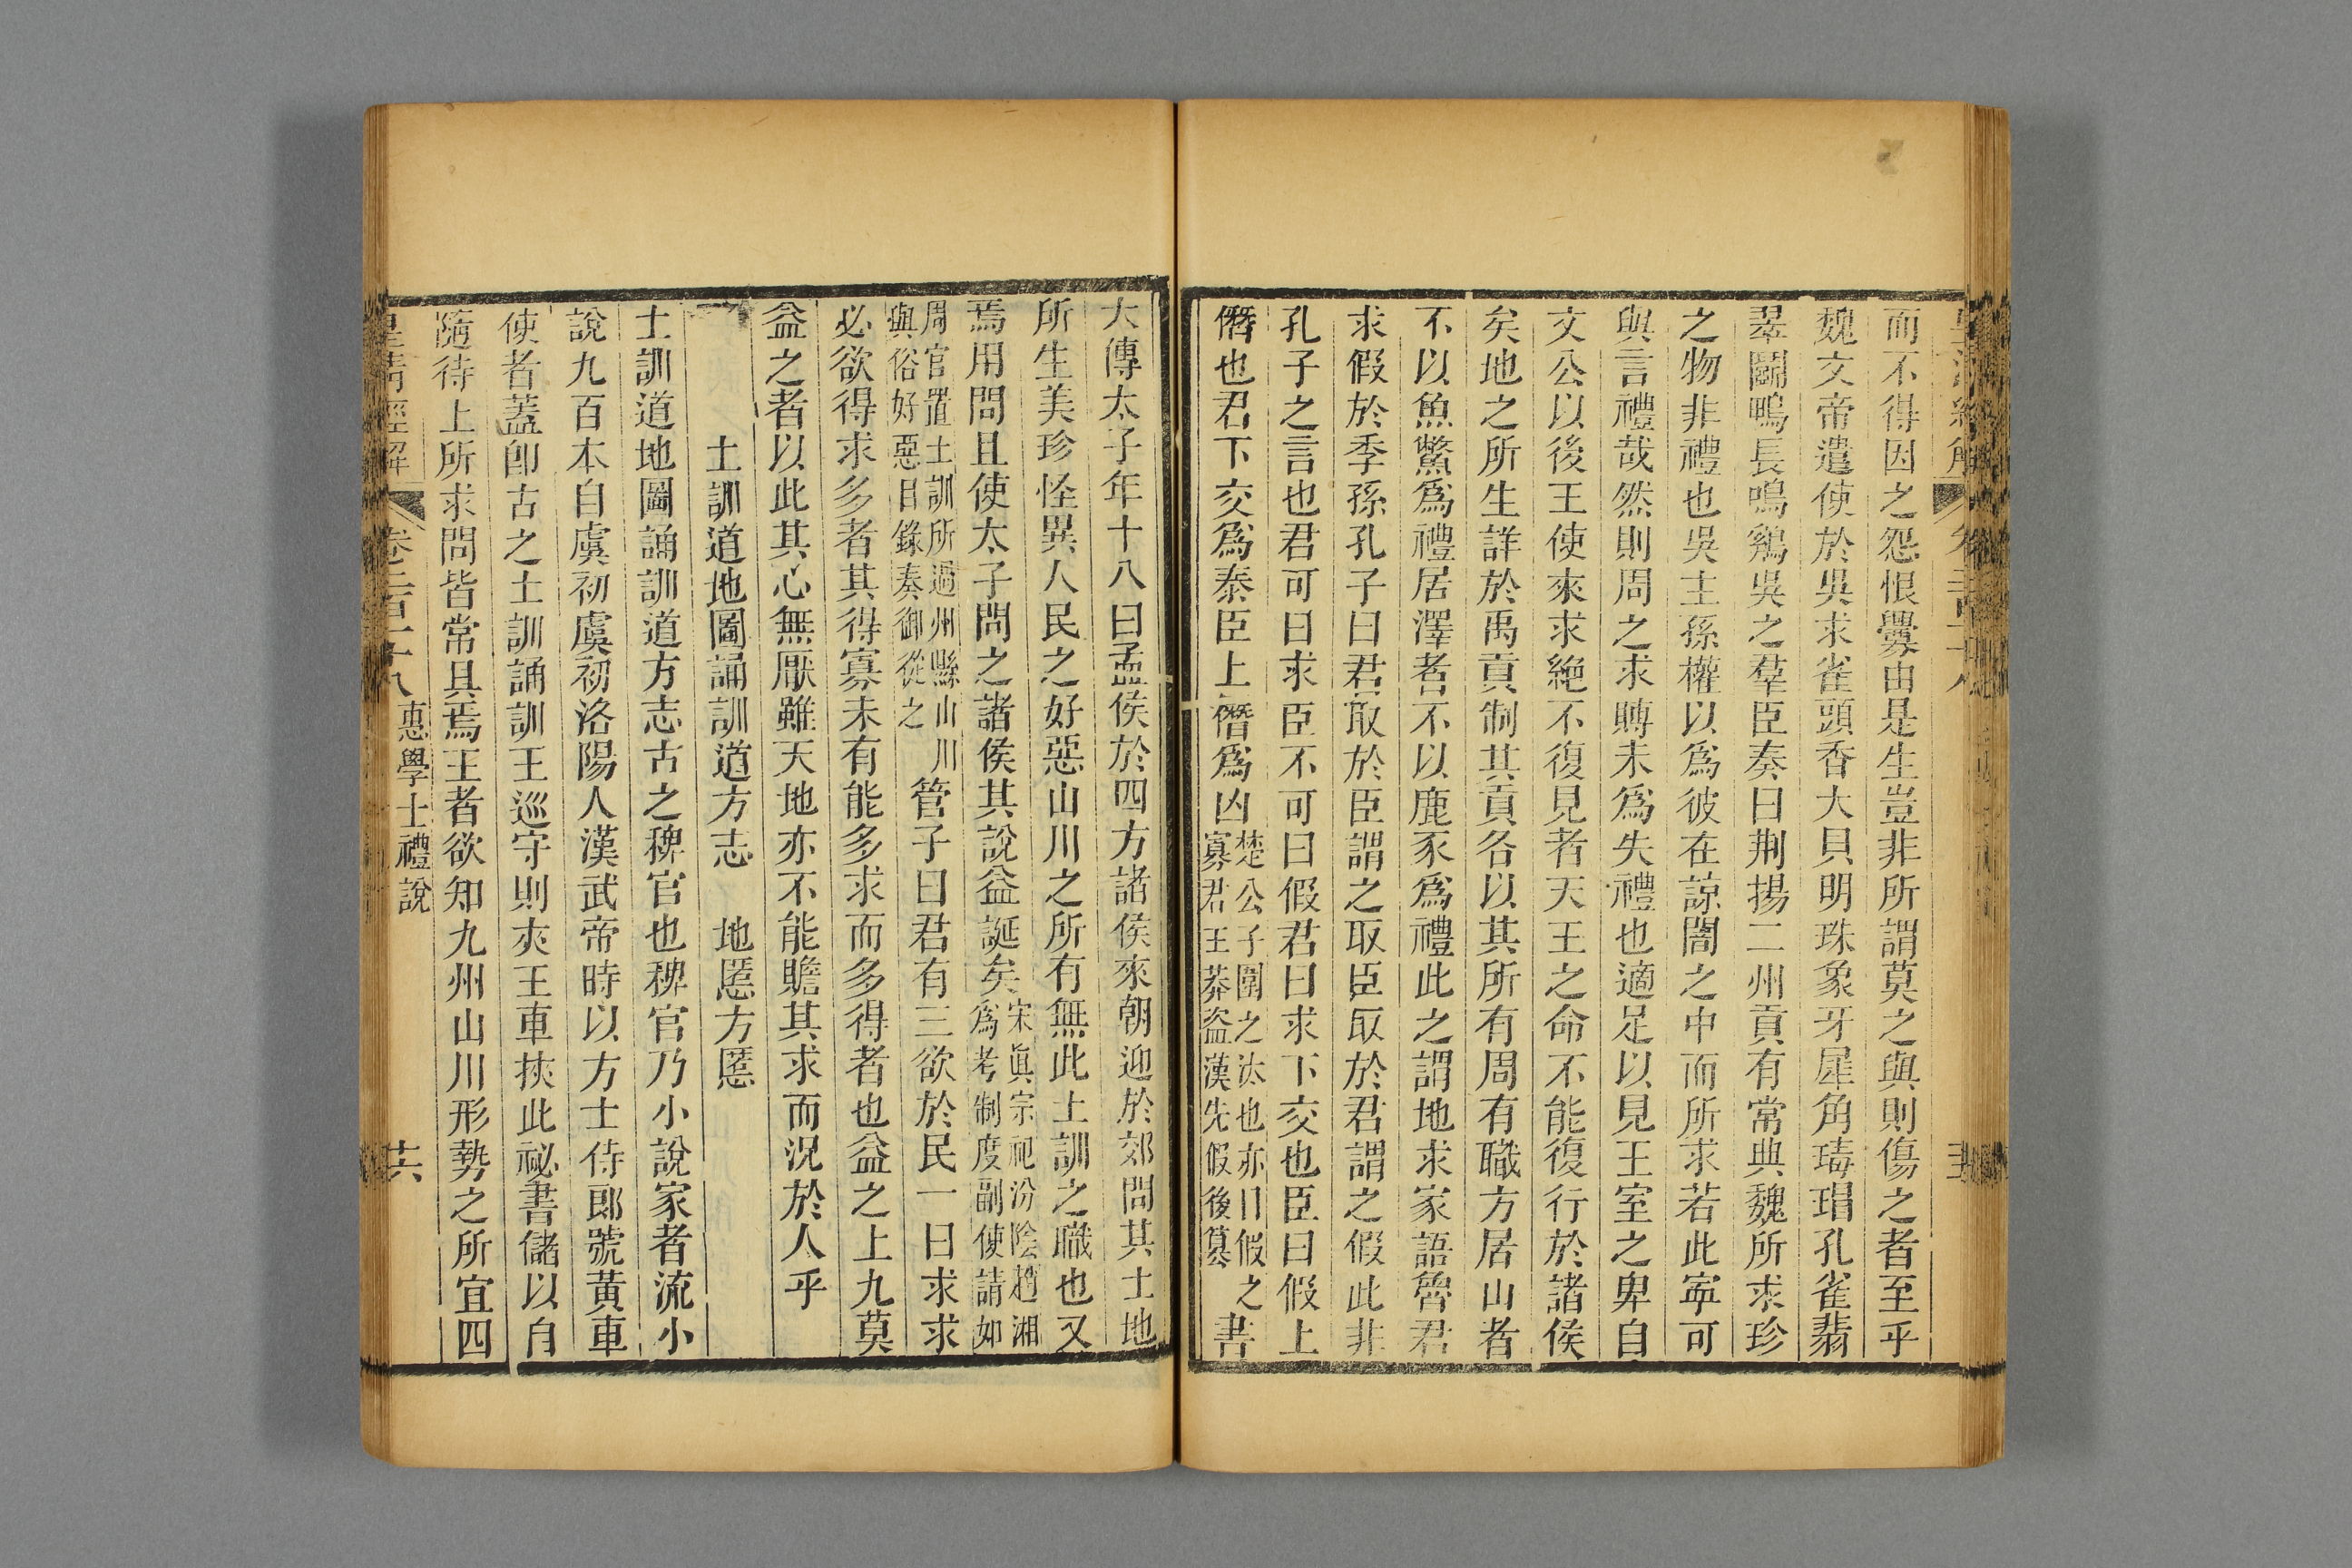 而不得因之怨恨釁由是生豈非所謂莫之與則傷之者至乎
魏文帝遣使於吳求雀頭香大貝明珠象牙犀角瑇瑁孔雀翡
翠鬭鴨長鳴鷄吳之羣臣奏曰荆揚二州貢有常典魏所求珍
之物非禮也吳主孫權以爲彼在諒闇之中而所求若此寧可
與言禮哉然則周之求賻未爲失禮也適足以見王室之卑自
文公以後王使來求絕不復見者天王之命不能復行於諸侯
矣地之所生詳於禹貢制其貢各以其所有周有職方居山者
不以魚鱉爲禮居澤者不以鹿豕爲禮此之謂地求家語魯君
求假於季孫孔子曰君取於臣謂之取臣取於君謂之假此非
孔子之言也君可曰求臣不可曰假君曰求下交也臣曰假上
僭也君下交爲泰臣上僭爲凶楚公子圍之汰也亦曰假之寡君王莽盗漢先假後篡書
大傳太子年十八曰孟侯於四方諸侯來朝迎於郊問其土地
所生美珍怪異人民之好惡山川之所有無此土訓之職也又
焉用問且使太子問之諸侯其說益誕矣宋眞宗祀汾陰趙湘爲考制度副使請如
周官置土訓所過州縣山川與俗好惡日錄奏御從之管子曰君有三欲於民一曰求求
必欲得求多者其得寡未有能多求而多得者也益之上九莫
益之者以此其心無厭雖天地亦不能贍其求而況於人乎
土訓道地圖誦訓道方志 地慝方慝
土訓道地圖誦訓道方志古之稗官也稗官乃小說家者流小
說九百本自虞初虞初洛陽人漢武帝時以方士侍郎號黃車
使者蓋卽古之土訓誦訓王巡守則夾王車挾此祕書儲以自
隨待上所求問皆常具焉王者欲知九州山川形勢之所宜四
皇清經解 卷二百十八 惠學士禮說 十六